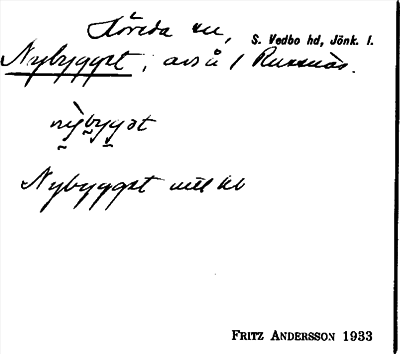 Höreda sn, S. Vedbo hd, Jönk. l.
Nybygget, avs å / Russnäs.
nỳbygət
Nybygget
FRITZ ANDERSSON 1933